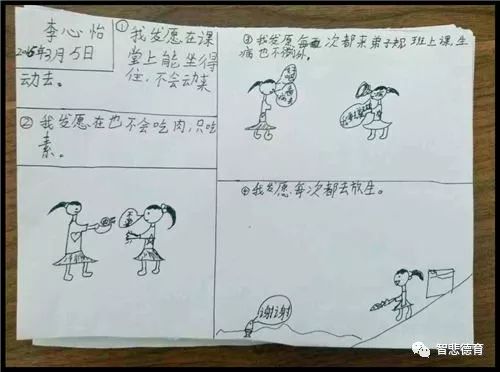 李心怡
2015年3月5日
①我发愿在课
堂上能坐得
住，不会动来
动去。
②我发愿在也不会吃肉，只吃
素。
③我发愿每次都来弟子规班上课，生
病也不例外。
④我发愿每次都去放生。
谢谢
智悲德育